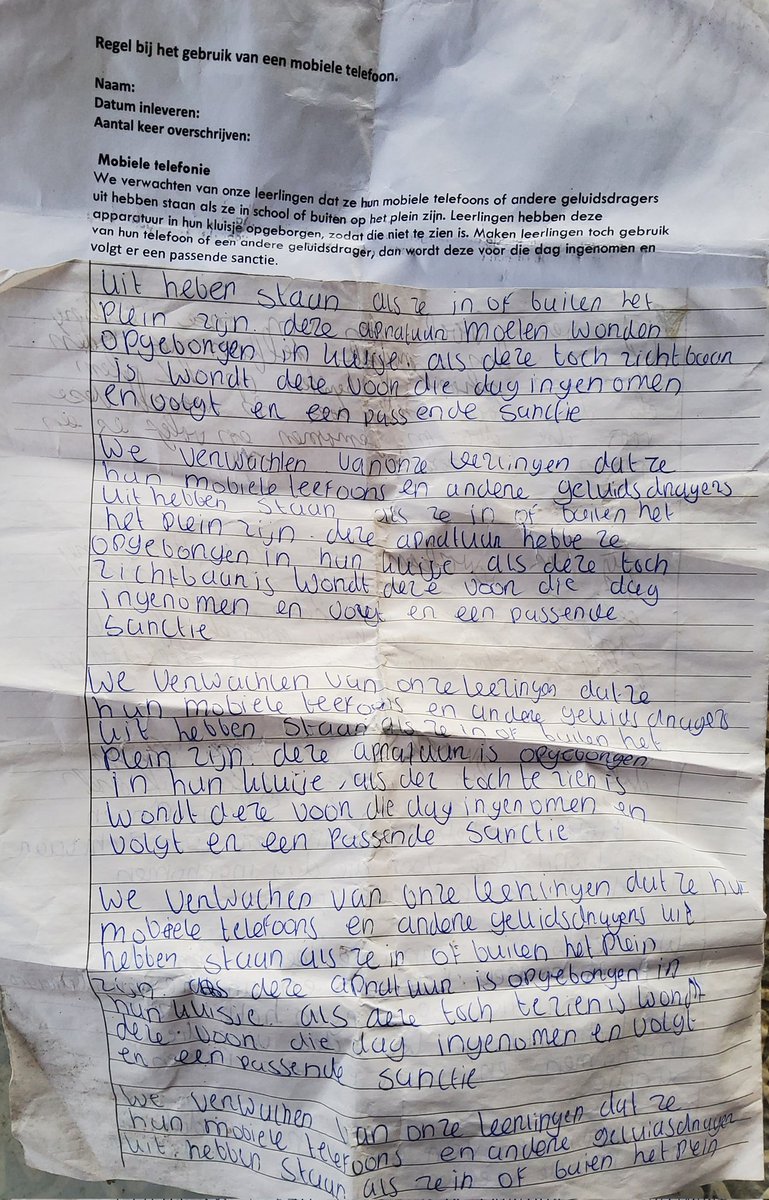 Regel bij het gebruik van een mobiele telefoon.
Naam:
Datum inleveren:
Aantal keer overschrijven:
Mobiele telefonie
We verwachten van onze leerlingen dat ze hun mobiele telefoons of andere geluidsdragers
uit hebben staan als ze in school of buiten op het plein zijn. Leerlingen hebben deze
apparatuur in hun kluisje opgeborgen, zodat die niet te zien is. Maken leerlingen toch gebruik
van hun telefoon of een andere geluidsdrager, dan wordt deze voor die dag ingenomen en
volgt er een passende sanctie.
uit heben staan als ze in of buiten het
plein zijn. deze apratuur moeten worden
opgeborgen in kluisje als deze toch zichtbaar
is wordt deze voor die dag ingenomen
en volgt er een passende sanctie
We verwachten van onze leerlingen dat ze
hun mobiele leefoons en andere geluidsdragers
uit hebben staan als ze in of buiten het
het plein zijn. deze apratuur hebbe ze
opgeborgen in hun kluisje als deze toch
zichtbaar is wordt deze voor die dag
ingenomen en volgt er een passende
sanctie
We verwachten van onze leerlingen dat ze
hun mobiele teefoons en andere geluidsdragers
uit hebben staan als ze in of buiten het
plein zijn. deze apratuur is opgeborgen
in hun kluisje, als dez toch te zien is
wordt deze voor die dag ingenomen en
volgt er een passende sanctie
We verwachen van onze leerlingen dat ze hun
mobiele telefoons en andere geluidsdragers uit
hebben staan als ze in of buiten het plein
zijn. deze apratuur is opgeborgen in
hun kluisje als deze toch te zien is wordt
deze voor die dag ingenomen en volgt
er een passende sanctie
We verwachen van onze leerlingen dat ze
hun mobiele telefoons en andere geluidsdrager
uit hebben staan als ze in of buien het plein